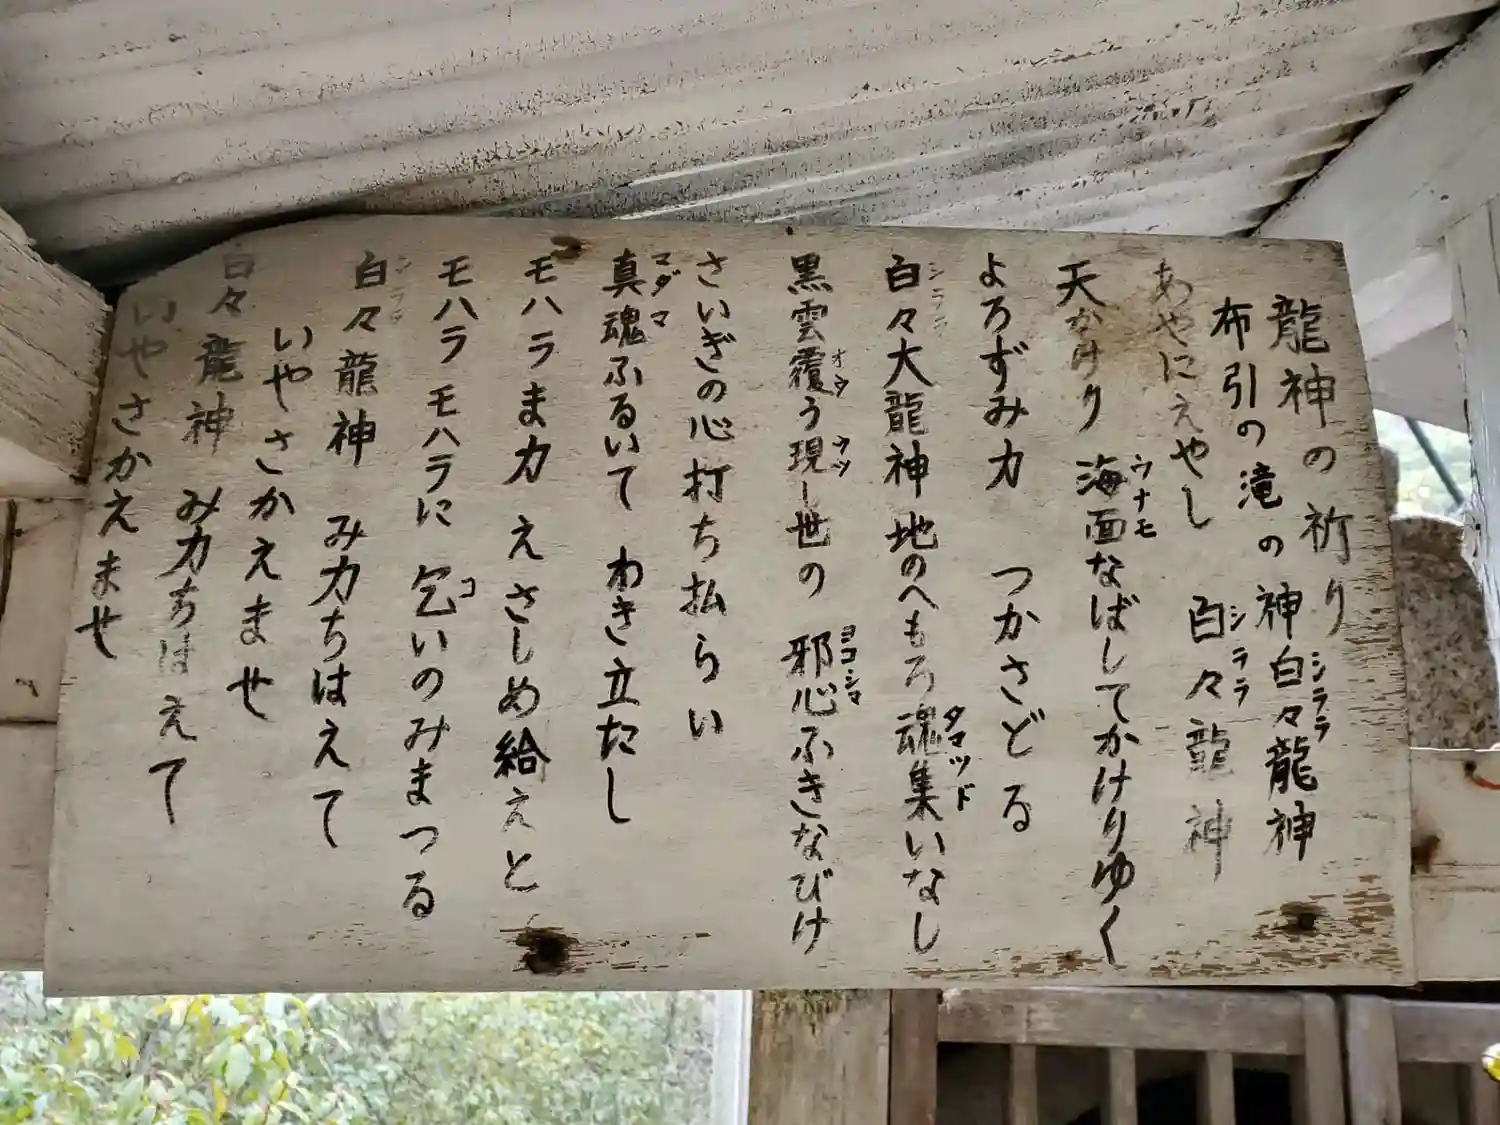 龍神の祈り
布引の滝の神白々龍神
シララ
あやにえやし 白々龍神
シララ
天かけり 海面なばしてかけりゆく
ウナモ
よろずみ力 つかさどる
白々大龍神 地のへもろ魂集いなし
シララ
タマツド
黒雲覆う現し世の 邪心ふきなびけ
オウ
ウツ
ヨコシマ
さいぎの心打ち払らい
真魂ふるいて わき立たし
マダマ
モハラま力 えさしめ給えと
モハラモハラに 乞いのみまつる
コ
白々龍神 み力ちはえて
シララ
いやさかえませ
白々龍神 み力ちはえて
いやさかえませ